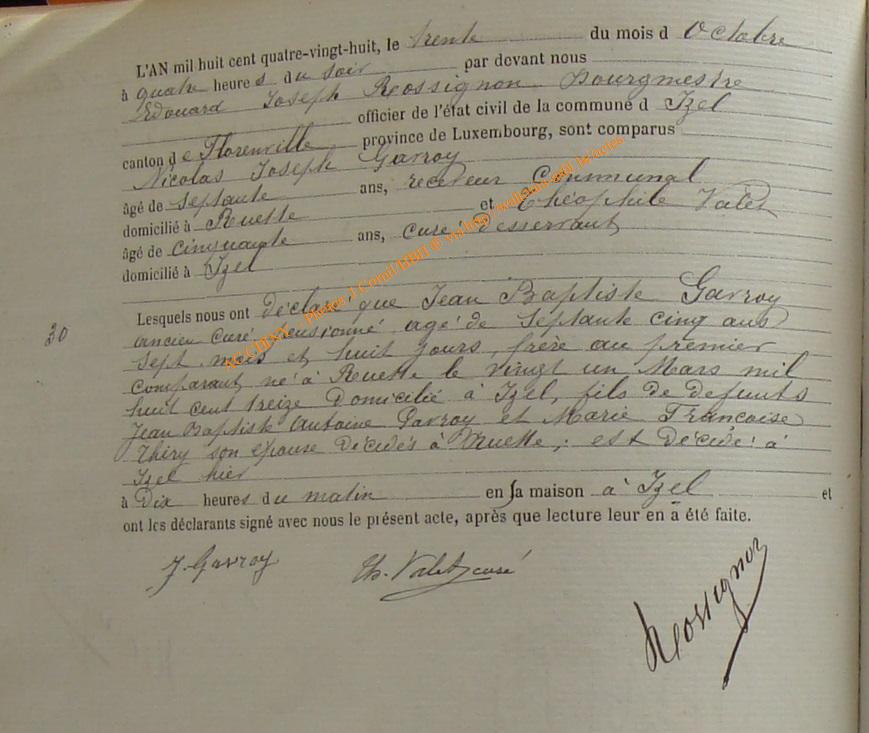 L'AN mil huit cent quatre-vingt-huit, le trente du mois d'Octobre
à quatre heures du soir par devant nous
Edouard Joseph Rossignon Bourgmestre
officier de l'état civil de la commune d Izel
canton de Florenville province de Luxembourg, sont comparus
Nicolas Joseph Gavroy
âgé de septante ans, receveur Communal
domicilié à Ruette et Théophile Valet
âgé de cinquante ans, curé desservant
domicilié à Izel
Lesquels nous ont déclaré que Jean Baptiste Gavroy
30
ancien curé pensionné, agé de septante cinq ans
sept mois et huit jours, frère au premier
comparant né à Ruette le vingt un Mars mil
huit cent treize domicilié à Izel, fils de defunts
Jean Baptiste Antoine Gavroy et Marie Françoise
Théry son épouse décédés à Ruette; est décédé à
Izel hier
à Dix heures du matin en sa maison à Izel et
ont les déclarants signé avec nous le présent acte, après que lecture leur en a été faite.
J. Gavroy
Th. Valet curé
Rossignon